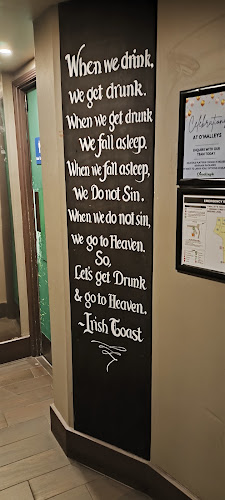 When we drink,
we get drunk.
When we get drunk
We fall asleep.
When we fall asleep,
We Do not Sin.
When we do not sin,
we go to Heaven.
So,
Let's get Drunk
& go to Heaven.
~Irish Toast
Celebrations
AT O'MALLEYS
ENQUIRE WITH OUR
TEAM TODAY
EMERGENCY